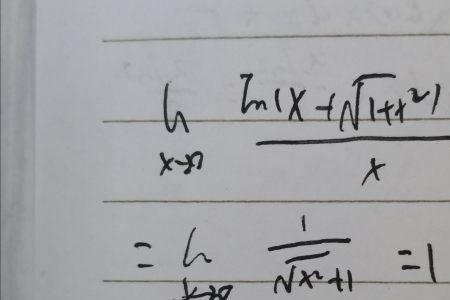 lim x→0 ln(x+√(1+x²)) / x
= lim x→0 1/√(x²+1) = 1